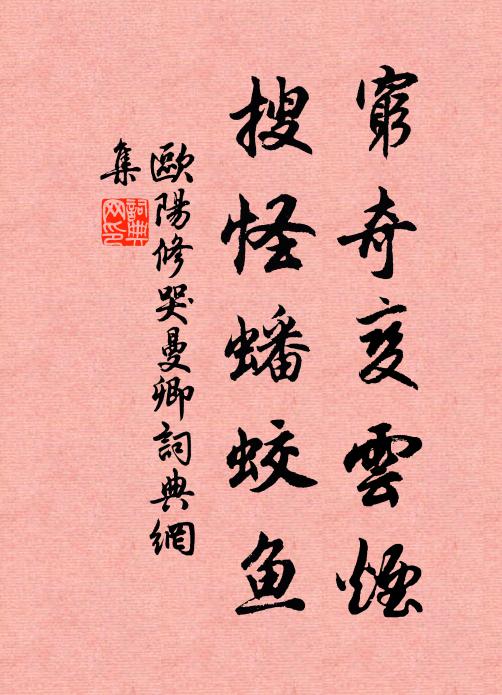 窮奇變雲煙
搜怪蟠蛟魚
歐陽修哭曼卿詞典網
集
詞典
网印